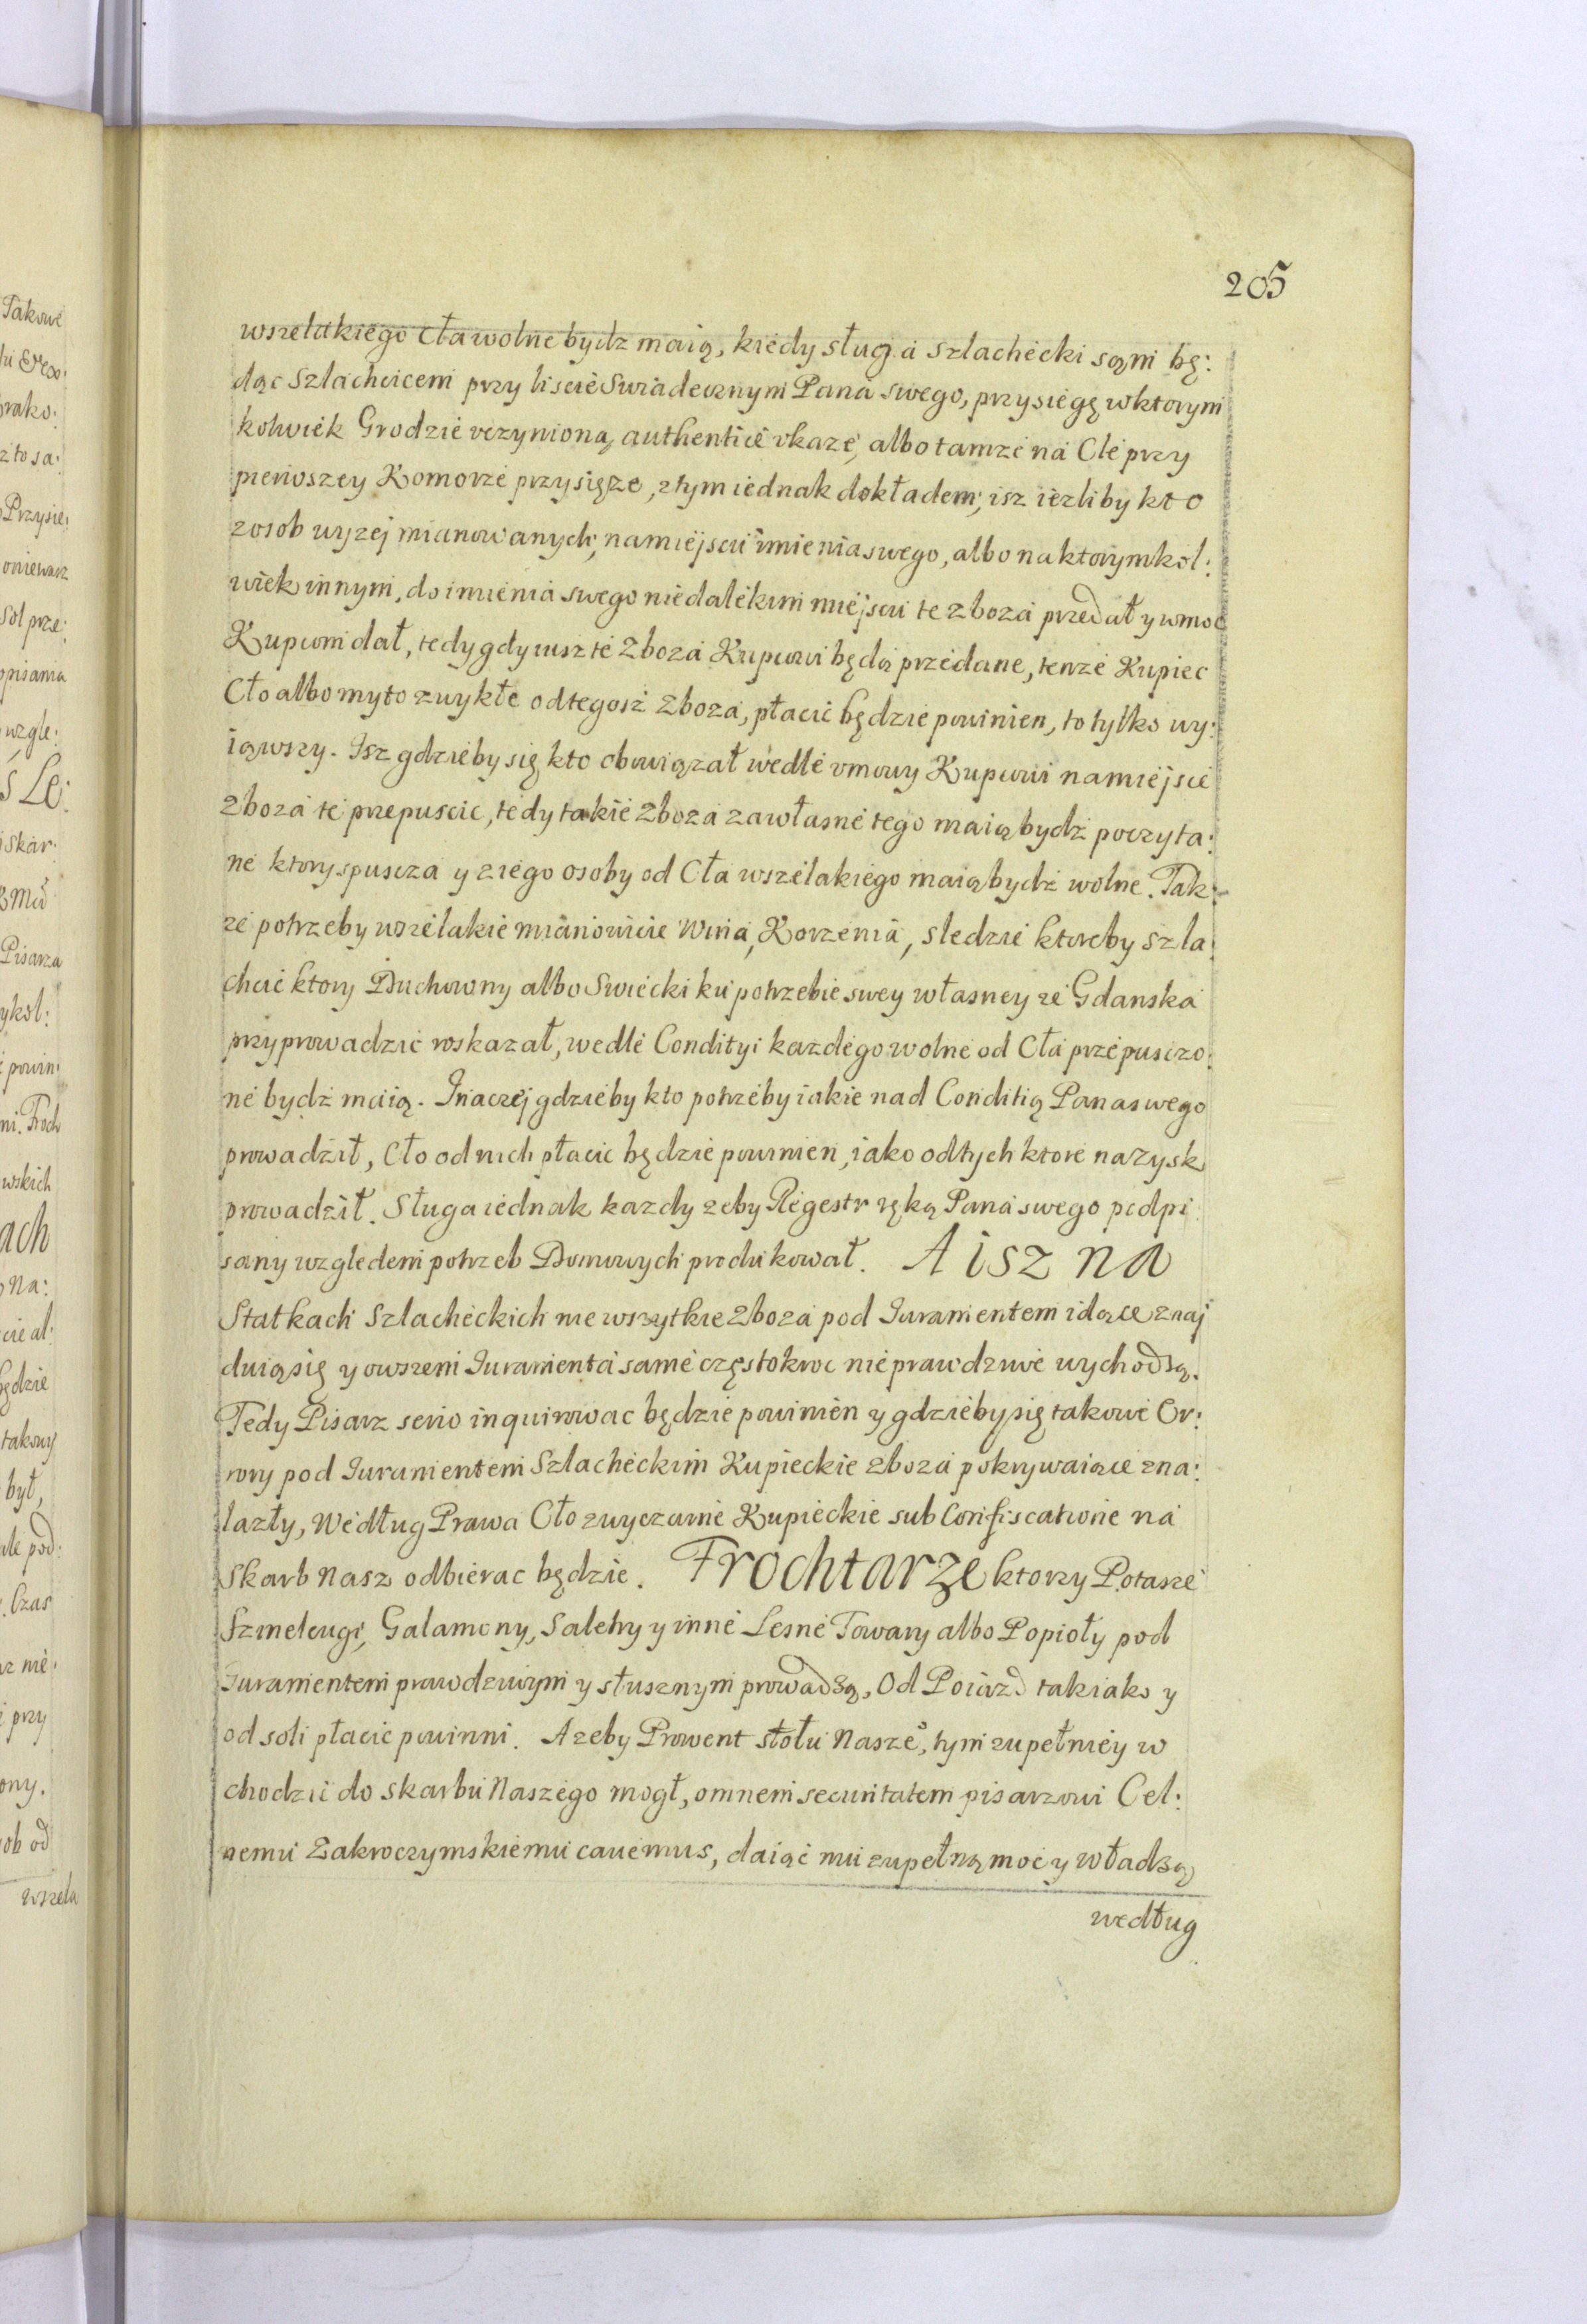 205
wszelakiego Cła wolne bydz maią, kiedy sługa szlachecki sąm bę:
dąc szlachcicem przy liscie Swiadecznym Pana swego, przysięgę wktorym
kolwiek Grodzie vczynioną authentice vkaze, albo tamze na Cle przy
pierwszey Komorze przysięze, z tym iednak dokładem, isz iezliby kto
zosob wyzej mianowanych, namiejscu imienia swego, albo naktorymkol:
wiek innym, do imienia swego niedalekim miejscu te zboza przedał y wmoc
Kupcom dał, tedy gdy iusz te Zboza Kupcowi będą przedane, tenze Kupiec
Cło albo myto zwykłe od tegosz Zboza, płacic będzie powinien, to tylko wy:
iąwszy. Isz gdzieby się kto obowiązał wedle vmowy Kupcowi namiejsce
zboza te przepuscic, tedy takie Zboza zawłasne tego maią bydz poczyta:
ne ktory spuscza y z iego osoby od Cła wszelakiego maią bydz wolne. Tak:
ze potrzeby wszelakie mianowicie Wina, Korzenia, sledzie ktoreby szla:
chcic ktory Duchowny albo Swiecki ku potrzebie swey własney ze Gdanska
przyprowadzic roskazał, wedle Condityi kazdego wolne od Cła przepusczo:
ne bydz maią. Inaczej gdzieby kto potrzeby iakie nad Conditią Pana swego
prowadził, Cło od nich płacic będzie powinien, iako odtych ktore na Zysk
prowadził. Sługa iednak kazdy zeby Regestr ręką Pana swego podpi
sany względem potrzeb Domowych produkował. A isz na
Statkach Szlacheckich nie wszytkie Zboza pod Iuramentem idące znaj
duią się y owszem Iuramenta same częstokroc nieprawdziwe wychodzą.
Tedy Pisarz serio inquirowac będzie powinien y gdzieby się takowe Or:
rory pod Iuramentem Szlacheckim Kupieckie zboza pokrywaiące zna:
lazły, Według Prawa Cło zwyczaine Kupieckie sub Confiscatione na
Skarb Nasz odbierac będzie. Frochtarze ktorzy Potasze
Szmelcugi, Galamony, Saletry y inne Lesne Towary albo Popioły pod
Iuramentem prawdziwym y słusznym prowadzą, Od Poiazd tak iako y
od soli płacic powinni. Azeby Prowent stołu Naszeo, tym zupełniey w
chodzic do skarbu Naszego mogł, omnem securitatem pisarzowi Cel:
nemu Zakroczymskiemu cauemus, daiąc mu zupełną moc y władzą
według
Takowe
brako:
z to sa:
Przysie:
oniewarz
Sol prze:
opisania
wzgle:
s Le:
skar:
Pisarza
ykol:
powin:
ni. Froch
wskich
ach
na:
cie al:
będzie
takowy
był,
ale pod:
Czas
az nie:
przy
ony.
ob od
wszela